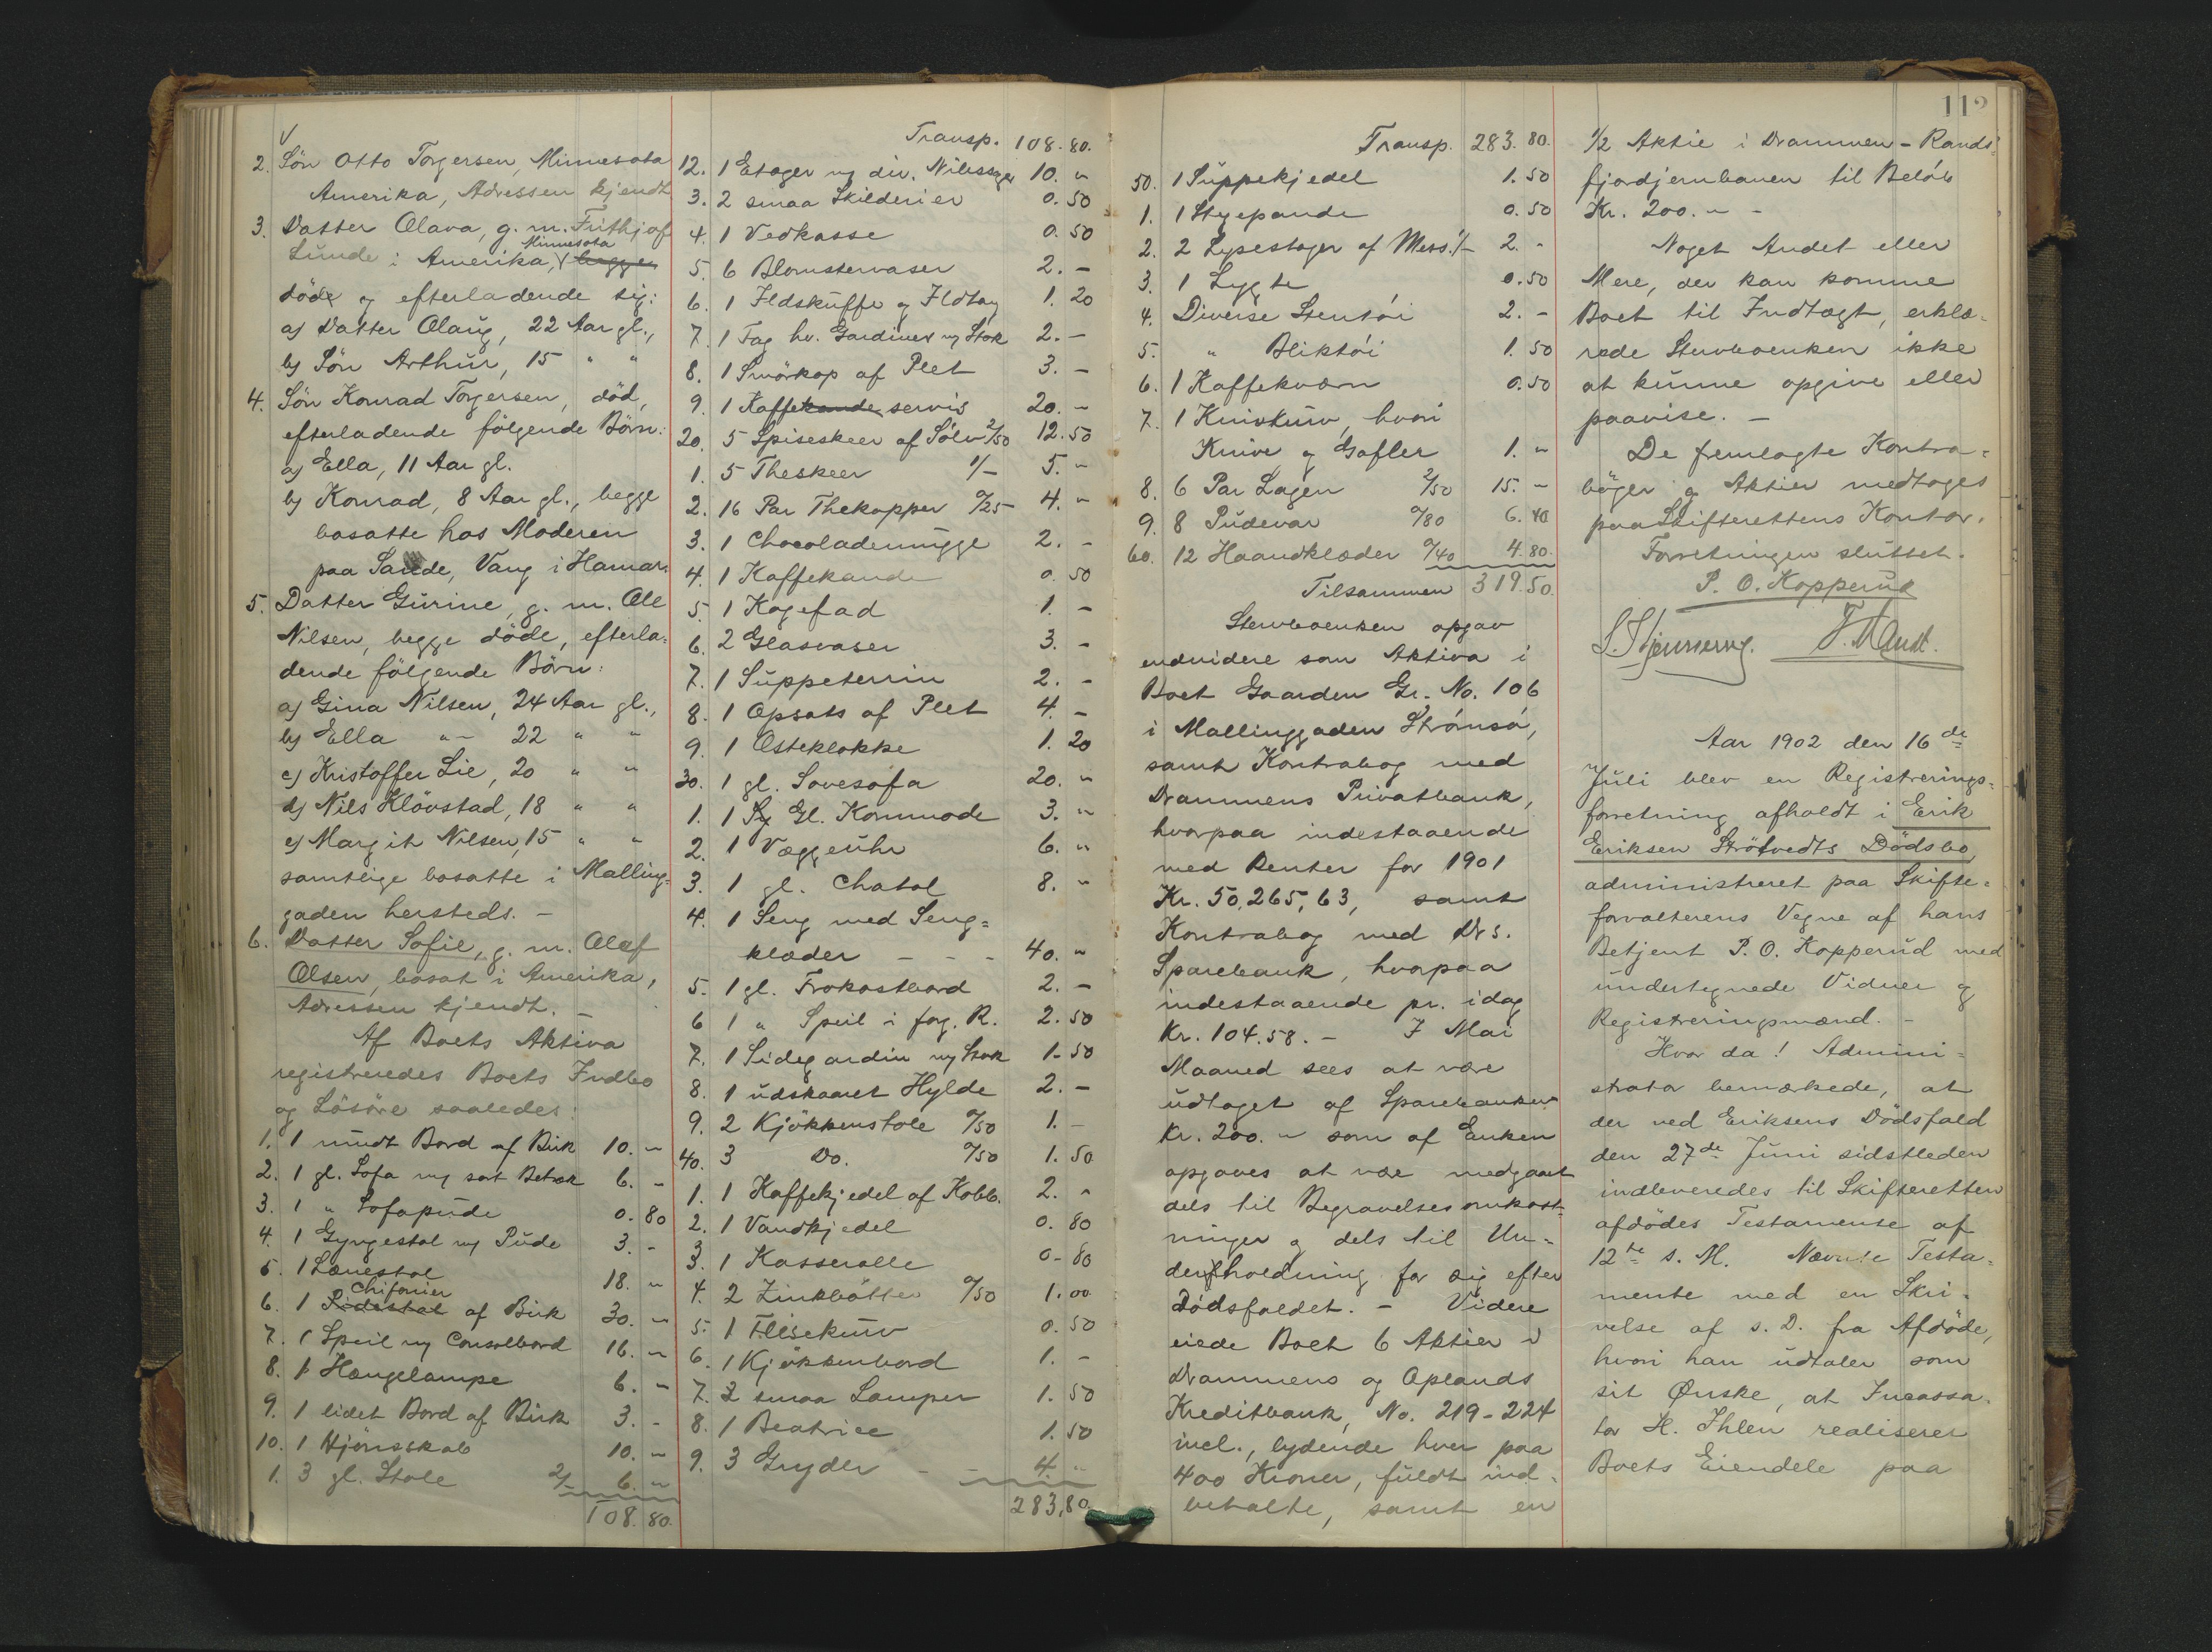 2. Sön Otto Torgersen, Minnesota
Amerika, Adressen kjendt
3. Datter Olava, g. m. Frithjof
Lunde i Amerika, Minnesota begge
döde og efterladende sig:
a) Datter Olaug, 22 Aar gl.,
b) Sön Arthur, 15 " "
4. Sön Konrad Torgersen, död,
efterladende følgende Börn:
a) Ella, 11 Aar gl.
b) Konrad, 8 Aar gl., begge
bosatte hos Moderen
paa Sande, Vang i Hamar.
5. Datter Gurine, g. m. Ole
Nilsen, begge döde, efterla=
dende følgende Börn:
a) Gina Nilsen, 24 Aar gl.,
b) Ella "– 22 " "
c) Kristoffer Lie, 20 " "
d) Nils Klövstad, 18 " "
e) Margit Nilsen, 15 " "
samtlige bosatte i Malling=
gaden hersteds. –
6. Datter Sofie, g. m. Olaf
Olsen, bosat i Amerika,
Adressen kjendt. –
Af Boets Aktiva
registreredes Boets Indbo
og Lösöre saaledes:
1. 1 rundt Bord af Birk 10. "
2. 1 gl. Sofa og sort Betræk 6. –
3. 1 " Sofapude 0. 80
4. 1 Gyngestol og Pude 3. –
5. 1 Lænestol 18. "
6. 1 Chifonier af Birk 30. "
7. 1 Speil og Consolbord 16. "
8. 1 Hængelampe 6. "
9. 1 lidet Bord af Birk 3. –
10. 1 Hjörneskab 10. "
1. 3 gl. Stole 2/– 6. "
108. 80.
Transp. 108. 80.
12. 1 Etager og div. Nibssager 10. "
3. 2 smaa Skilderier 0. 50
4. 1 Vedkasse 0. 50
5. 6 Blomstervaser 2. –
6. 1 Ildskuffe og Ildtang 1. 20
7. 1 Fag hv. Gardiner og Stok 2. –
8. 1 Smörkop af Plet 3. –
9. 1 Kaffekande servis 20. –
20. 5 Spiseskeer af Sölv 2/50 12. 50
1. 5 Theskeer 1/– 5. "
2. 16 Par Thekopper 0/25 4. "
3. 1 Chocolademugge 2. –
4. 1 Kaffekande 0. 50
5. 1 Kagefad 1. –
6. 2 Glasvaser 3. –
7. 1 Suppeterrin 2. –
8. 1 Opsats af Plet 4. –
9. 1 Osteklokke 1. 20
30. 1 gl. Sovesofa 20. "
1. 1 Gl. Kommode 3. "
2. 1 Væggeuhr 6. "
3. 1 gl. Chatol 8. "
4. 1 Seng med Seng=
klæder – – – 40. "
5. 1 gl. Frokostbord 2. –
6 1 " Speil i forg. R. 2. 50
7. 1 Sidegardin og Stok 1. 50
8. 1 udskaaret Hylde 2. –
9. 2 Kjökkenstole 0/50 1. –
40. 3 Do. 0/50 1. 50
1. 1 Kaffekjedel af Kobb. 2. "
2. 1 Vandkjedel 0. 80
3. 1 Kasserolle 0. 80
4. 2 Zinkbötter 0/50 1. 00
5. 1 Flisekurv 0. 50
6. 1 Kjökkenbord 1. –
7. 3 smaa Lamper 1. 50
8. 1 Beatrice 1. 50
9. 3 Gryder – – 4. "
283,80.
112
Transp. 283. 80.
50. 1 Suppekjedel 1. 50
1. 1 Stegepande 0. 50
2. 2 Lysestager af Mess. 1/– 2. –
3. 1 Lygte 0. 50
4. Diverse Stentöi 2. –
5. " Bliktöi 1. 50
6. 1 Kaffekværn 0. 50
7. 1 Knivkurv, hvori
Knive og Gafler 1. "
8. 6 Par Lagen 2/50 15. "
9. 8 Pudevar 0/80 6. 40
60. 12 Haandklæder 0/40 4. 80.
Tilsammen 319. 50.
Stervboenken opgav
endvidere som Aktiva i
Boet Gaarden Gr. No. 106
i Mallinggaden Strömsö,
samt Kontrabog med
Drammens Privatbank,
hvorpaa indestaaende
med Renter for 1901
Kr. 50,265,63, samt
Kontrabog med Drs.
Sparebank, hvorpaa
indestaaende pr. idag
Kr. 104.58. – I Mai
Maaned sees at være
udtaget af Sparebanken
Kr. 200. " som af Enken
opgaves at være medgaaet
dels til Begravelsesomkost=
ninger og dels til Un=
derholdning for sig efter
Dödsfaldet. – Videre
eiede Boet 6 Aktier i
Drammens og Oplands
Kreditbank, No. 219–224
incl., lydende hver paa
400 Kroner, fuldt ind=
betalte, samt en
1/2 Aktie i Drammen–Rands=
fjordjernbanen til Belöb
Kr. 200. " –
Noget Andet eller
Mere, der kan komme
Boet til Indtægt, erklæ=
rede Stervboenken ikke
at kunne opgive eller
paavise. –
De fremlagte Kontra=
böger og Aktier medtoges
paa Skifterettens Kontor.
Forretningen sluttet.
P. O. Kopperud
Aar 1902 den 16de
Juli blev en Registrerings=
forretning afholdt i Erik
Eriksen Strötvedts Dödsbo
administreret paa Skifte=
forvalterens Vegne af hans
Betjent P. O. Kopperud med
undertegnede Vidner og
Registreringsmænd. –
Hvor da! Admini=
strator bemærkede, at
der ved Eriksens Dödsfald
den 27de Juni sidstleden
indleveredes til Skifteretten
afdödes Testamente af
12te s. M. Nævnte Testa=
mente med en Skri=
velse af s. D. fra Afdöde,
hvori han udtaler som
sit Ønske, at Incassa=
tor H. Ihlen realiserer
Boets Eiendele paa